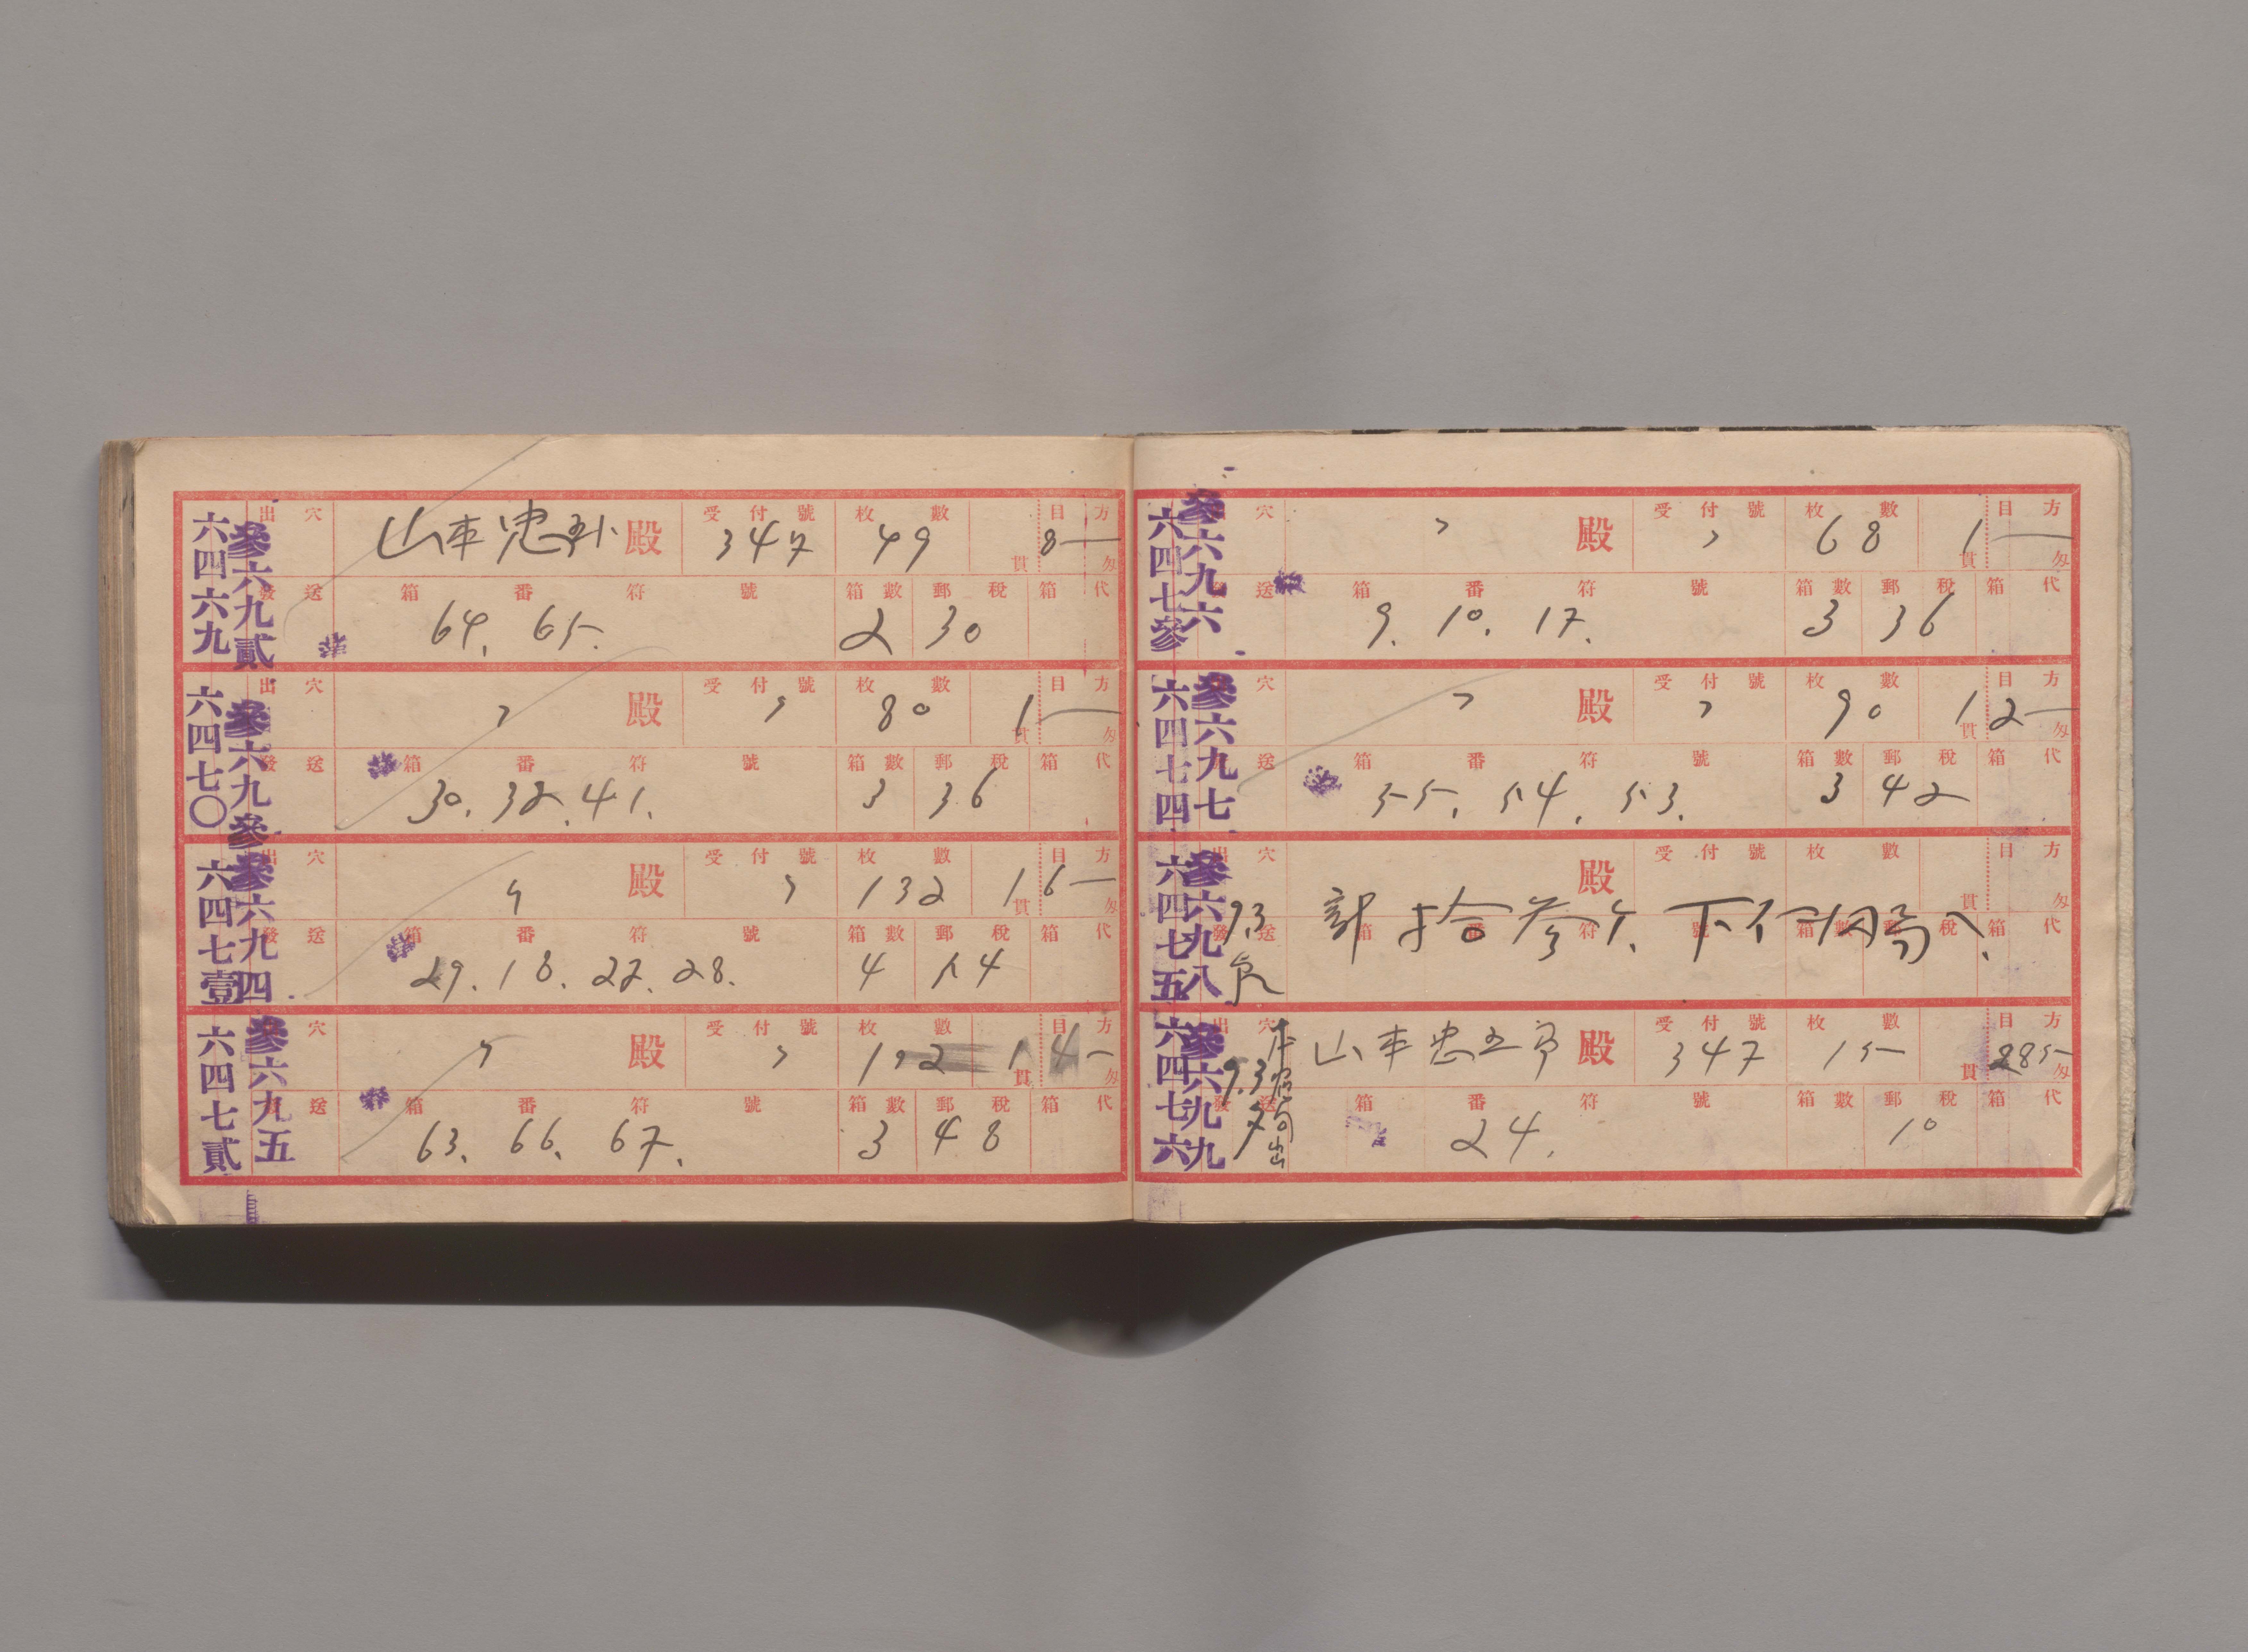 六四六九 參六九貳
出穴 山本忠 殿 受付號 347 枚數 49 貫 目方 8— 匁
發送 箱番符號 64. 65. 箱數 2 郵稅 30 箱代
六四七〇 參六九參
出穴 〃 殿 受付號 〃 枚數 80 1 貫 目方 — 匁
發送 箱番符號 30. 32. 41. 箱數 3 郵稅 36 箱代
六四七壹 參六九四
出穴 〃 殿 受付號 〃 枚數 132 1 貫 目方 6— 匁
發送 箱番符號 29. 18. 22. 28. 箱數 4 郵稅 54 箱代
六四七貳 參六九五
出穴 〃 殿 受付號 〃 枚數 102 1 貫 目方 4— 匁
發送 箱番符號 63. 66. 67. 箱數 3 郵稅 48 箱代
六四七參 參六九六
出穴 〃 殿 受付號 〃 枚數 68 1 貫 目方 — 匁
發送 箱番符號 9. 10. 17. 箱數 3 郵稅 36 箱代
六四七四 參六九七
出穴 〃 殿 受付號 〃 枚數 90 1 貫 目方 2— 匁
發送 箱番符號 55. 54. 53. 箱數 3 郵稅 42 箱代
六四七五 參六九八
出穴 殿 受付號 枚數 貫 目方 匁
9.3 計拾參ケ. 下 局へ.
發送 箱番符號 箱數 郵稅 箱代
六四七六 參六九九
出穴 山本忠五郎 殿 受付號 347 枚數 15 貫 目方 285 匁
9.3
發送 箱番符號 24. 箱數 郵稅 10 箱代